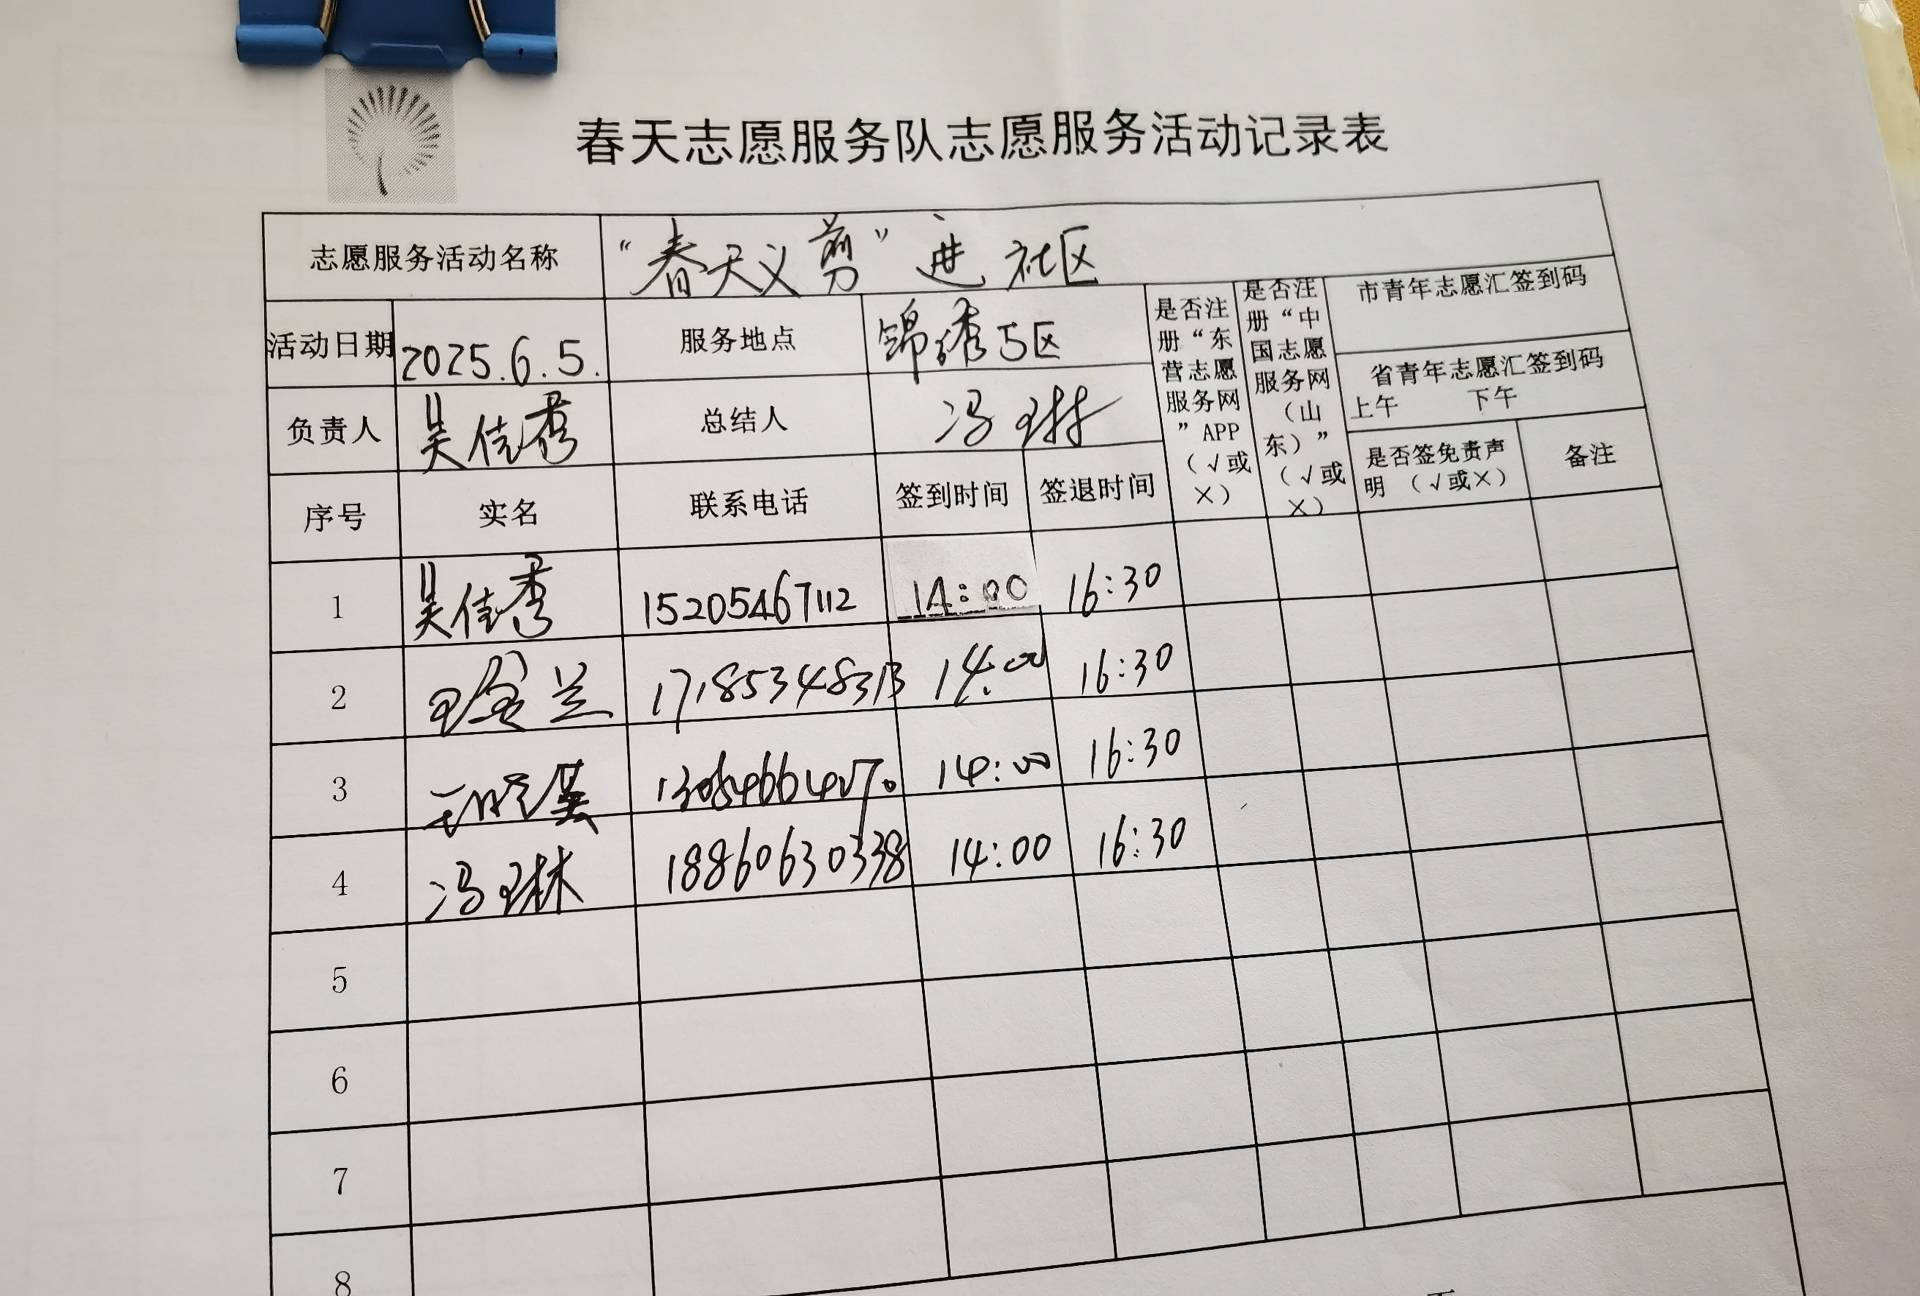 春天志愿服务队志愿服务活动记录表
志愿服务活动名称 “春天义剪”进社区
活动日期 2025.6.5. 服务地点 锦绣5区
负责人 吴佳秀 总结人 冯琳
是否注册“东营志愿服务网”APP（√或×）
是否注册“中国志愿服务网（山东）”（√或×）
市青年志愿汇签到码
省青年志愿汇签到码
上午 下午
是否签免责声明（√或×） 备注
序号 实名 联系电话 签到时间 签退时间
1 吴佳秀 15205467112 14:00 16:30
2 17185348313 14:00 16:30
3 14:00 16:30
4 冯琳 18860630338 14:00 16:30
5
6
7
8